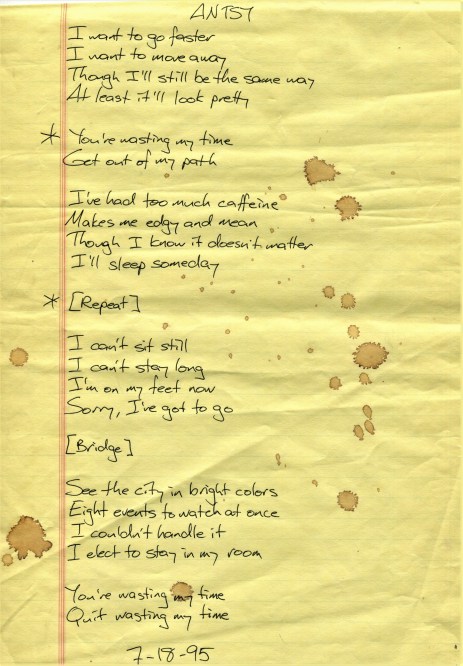 ANTSY
I want to go faster
I want to move away
Though I'll still be the same way
At least it'll look pretty
* You're wasting my time
Get out of my path
I've had too much caffeine
Makes me edgy and mean
Though I know it doesn't matter
I'll sleep someday
* [Repeat]
I can't sit still
I can't stay long
I'm on my feet now
Sorry, I've got to go
[Bridge]
See the city in bright colors
Eight events to watch at once
I couldn't handle it
I elect to stay in my room
You're wasting my time
Quit wasting my time
7-18-95